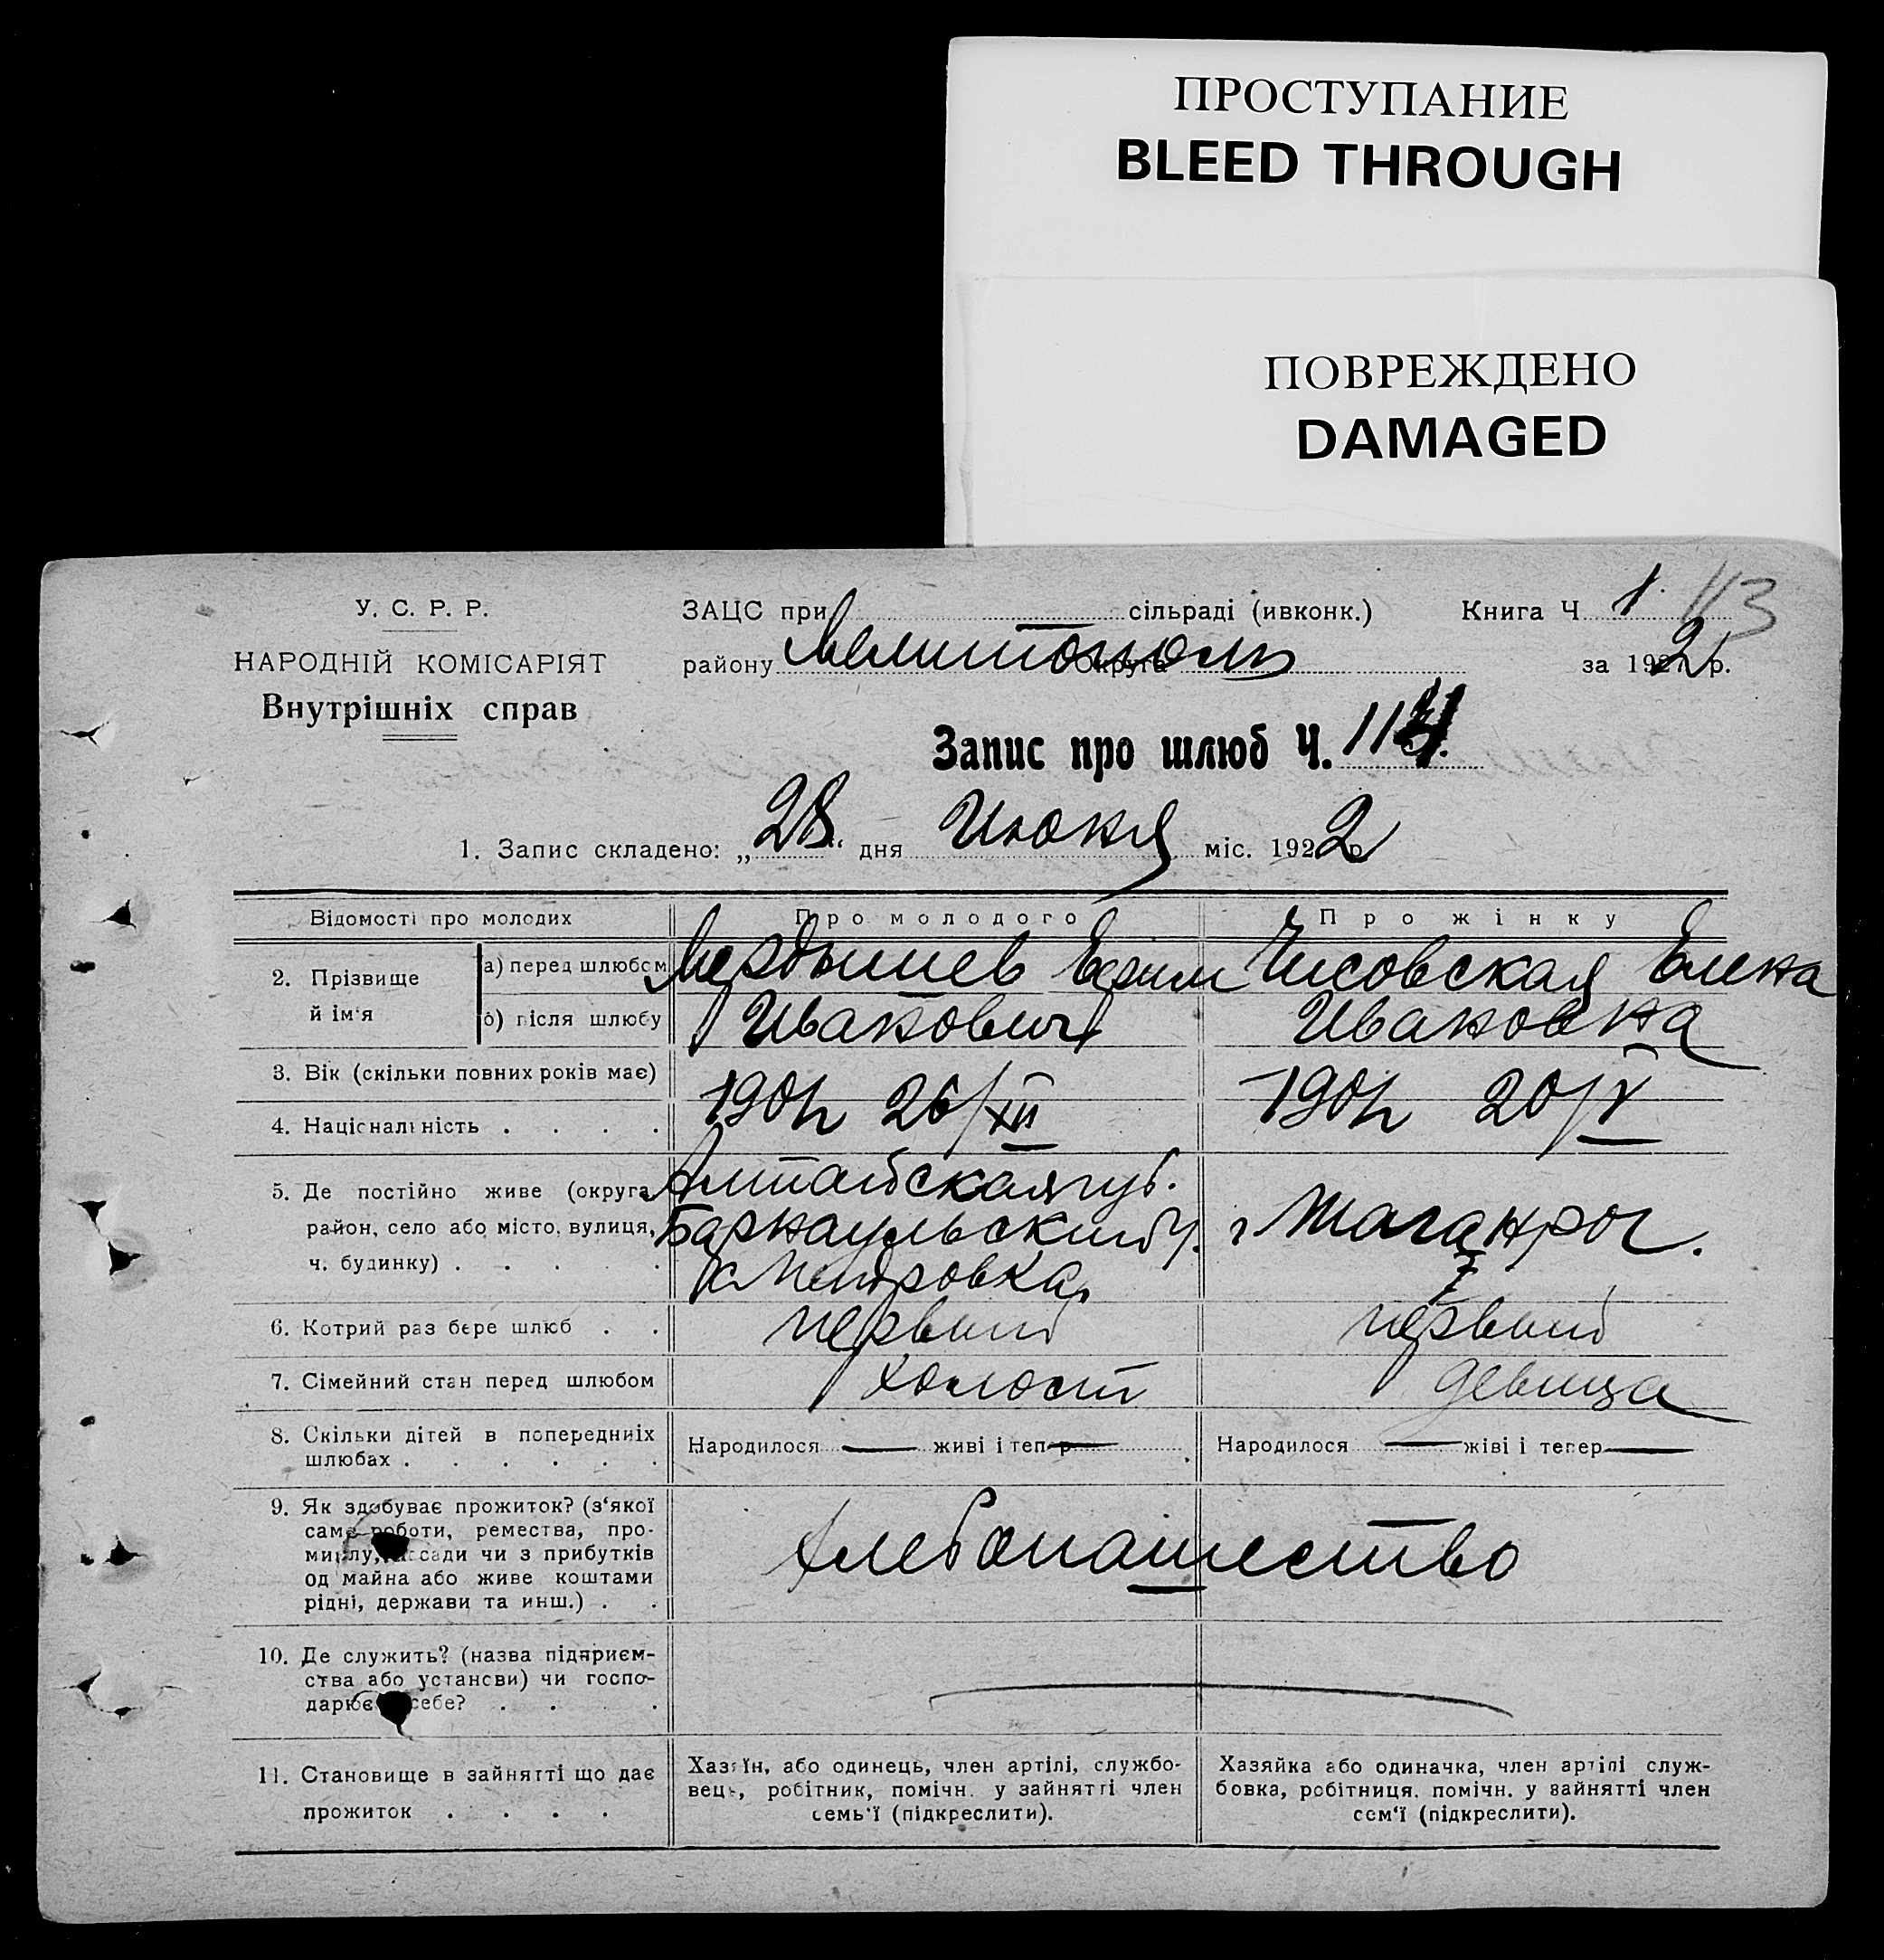 ПРОСТУПАНИЕ
BLEED THROUGH
ПОВРЕЖДЕНО
DAMAGED
У. С. Р. Р.
НАРОДНІЙ КОМІСАРІЯТ
Внутрішніх справ
ЗАЦС при сільраді (ивконк.) Книга Ч 1. 113
району Мелитополь округа за 1922 р.
Запис про шлюб Ч. 114
1. Запис складено: „28“ дня Июня міс. 1922 р.
Відомості про молодих Про молодого Про жінку
2. Прізвище й ім'я
а) перед шлюбом Ефим Чисовская Елена
б) після шлюбу Иванович Ивановна
3. Вік (скільки повних років має) 1901 26/XII 1901 20/V
4. Національність . . . .
5. Де постійно живе (округа, Алтайская губ.
район, село або місто, вулиця, Барнаульский у. г Таганрог.
ч. будинку) . . . . .
6. Котрий раз бере шлюб . . первый первый
7. Сімейний стан перед шлюбом холост девица
8. Скільки дітей в попередніх Народилося — живі і тепер — Народилося — жіві і тепер —
шлюбах . . . . . .
9. Як здобуває прожиток? (з'якої
саме роботи, ремества, про-
мислу, посади чи з прибутків Хлебопашество
од майна або живе коштами
рідні, держави та инш.) . .
10. Де служить? (назва підприєм-
ства або установи) чи госпо-
дарює себе? . . .
11. Становище в зайнятті що дає
прожиток . . . .
Хазяїн, або одинець, член артілі, службо-
вець, робітник, помічн. у зайнятті член
семь'ї (підкреслити).
Хазяйка або одиначка, член артілі служ-
бовка, робітниця. помічн. у зайнятті член
сем'ї (підкреслити).